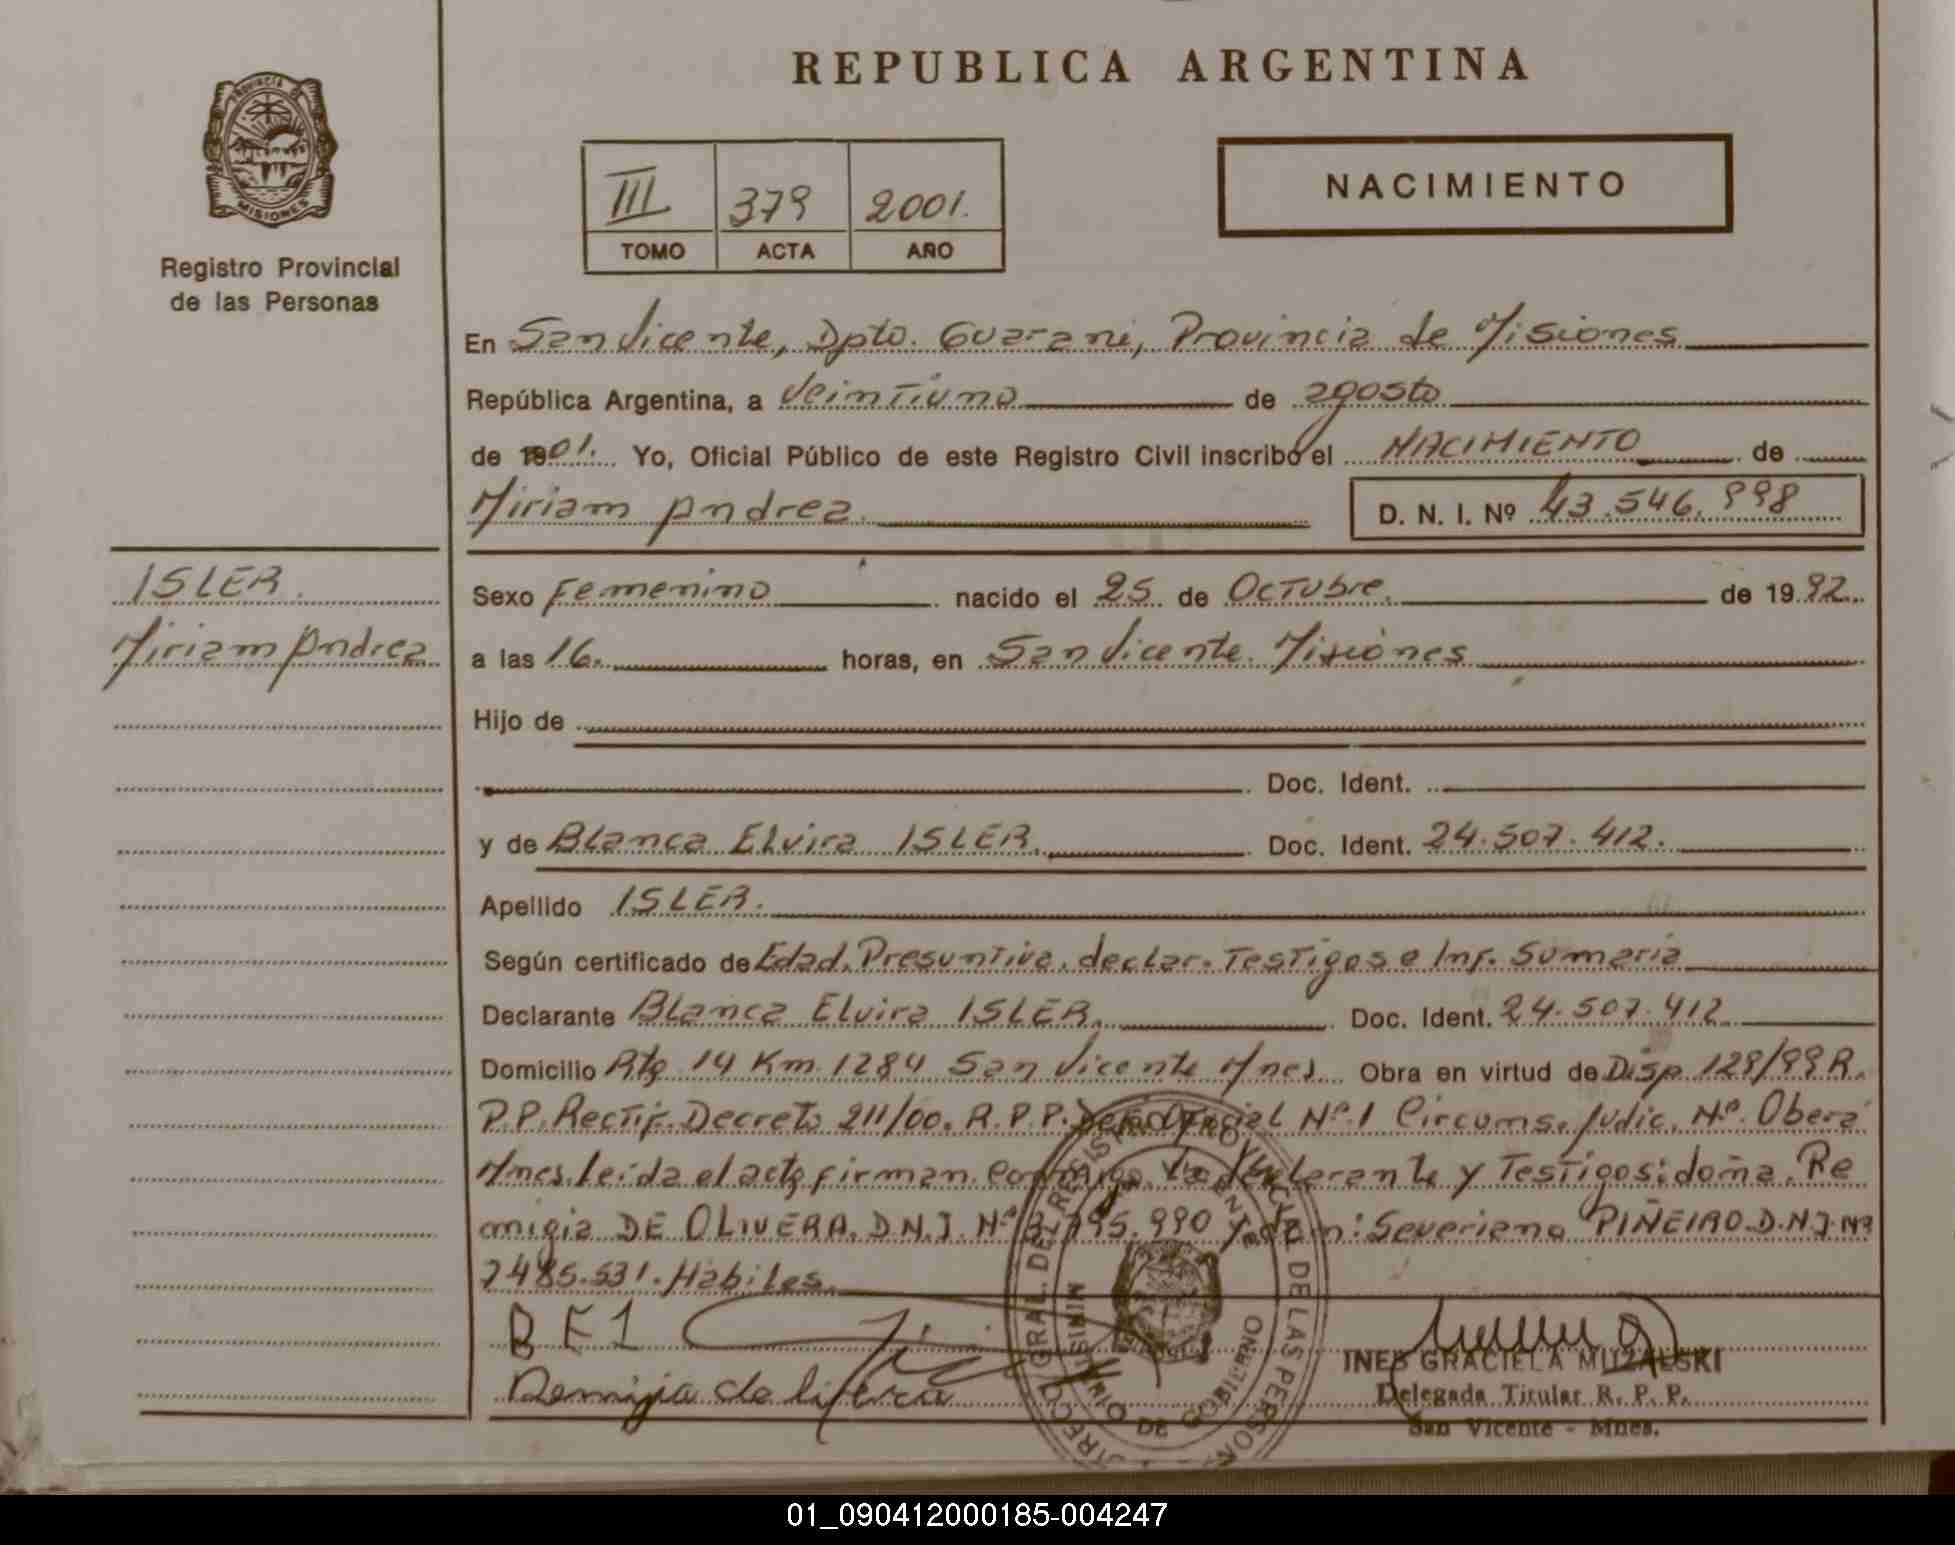 REPUBLICA ARGENTINA
PROVINCIA DE
MISIONES
Registro Provincial
de las Personas
III 379 2001.
TOMO ACTA AÑO
NACIMIENTO
En San Vicente, Dpto. Guarani, Provincia de Misiones
República Argentina, a Veintiuno de agosto
de 1901. Yo, Oficial Público de este Registro Civil inscribo el NACIMIENTO de
Miriam Andrea. D. N. I. Nº 43.546.998
ISLER.
Miriam Andrea
Sexo Femenino nacido el 25 de Octubre. de 1992
a las 16. horas, en San Vicente. Misiones
Hijo de
Doc. Ident.
y de Blanca Elvira ISLER. Doc. Ident. 24.507.412.
Apellido ISLER.
Según certificado de Edad. Presuntiva. declar. Testigos e Inf. Sumaria
Declarante Blanca Elvira ISLER. Doc. Ident. 24.507.412
Domicilio Rta 14 Km 1284 San Vicente Mnes. Obra en virtud de Disp 129/99 R.
P.P. Rectif. Decreto 211/00. R.P.P. Oficial Nº.1 Circuns. Judic. Nº. Oberá
Mnes. leida el acta firman conmigo la declarante y Testigos: doña. Re
migia DE OLIVERA. D.N.I. Nº 995.990 y don: Severiano PIÑEIRO. D.N.I. Nº
7485.531. Habiles.
B E I
Remijia de livera
INES GRACIELA MUZALSKI
Delegada Titular R. P. P.
San Vicente - Mnes.
DIRECC. GRAL. DEL REGISTRO PROVINCIAL DE LAS PERSONAS
MINISTERIO DE GOBIERNO
01_090412000185-004247